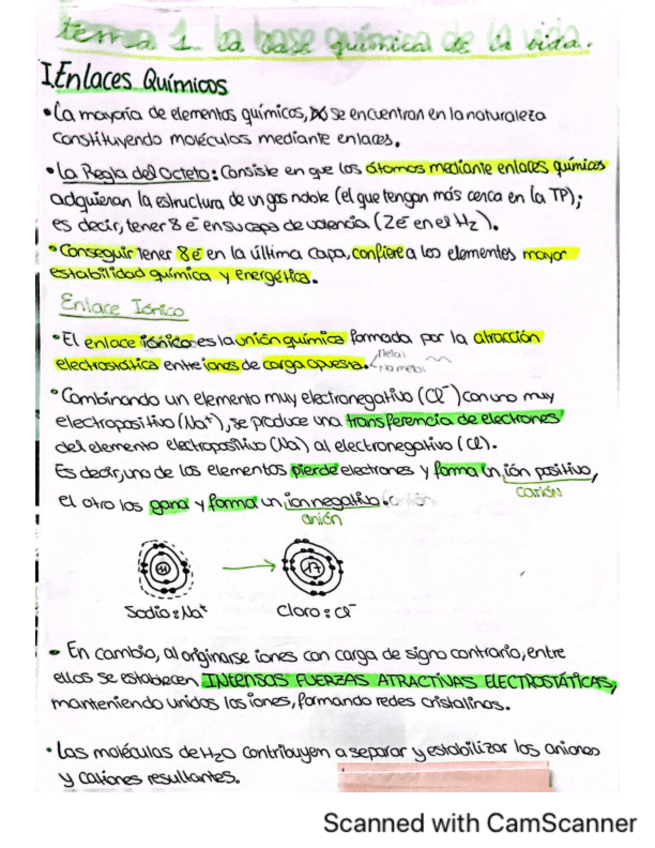 tema 1. La base química de la vida.
I. Enlaces Químicos
• La mayoría de elementos químicos, se encuentran en la naturaleza
constituyendo moléculas mediante enlaces.
• La Regla del Octeto: Consiste en que los átomos mediante enlaces químicos
adquieran la estructura de un gas noble (el que tengan más cerca en la TP);
es decir, tener 8 e⁻ en su capa de valencia (2e⁻ en el H₂).
• Conseguir tener 8 e⁻ en la última capa, confiere a los elementos mayor
estabilidad química y energética.
Enlace Iónico
• El enlace iónico es la unión química formada por la atracción
electrostática entre iones de carga opuesta.
Metal
No metal
• Combinando un elemento muy electronegativo (Cl⁻) con uno muy
electropositivo (Na⁺), se produce una transferencia de electrones
del elemento electropositivo (Na) al electronegativo (Cl).
Es decir, uno de los elementos pierde electrones y forma un ión positivo,
catión
el otro los gana y forma un ion negativo.
anión
11
17
Sodio: Na⁺
Cloro: Cl⁻
• En cambio, al originarse iones con carga de signo contrario, entre
ellos se establecen INTENSAS FUERZAS ATRACTIVAS ELECTROSTÁTICAS,
manteniendo unidos los iones, formando redes cristalinas.
• Las moléculas de H₂O contribuyen a separar y estabilizar los aniones
y cationes resultantes.
Scanned with CamScanner